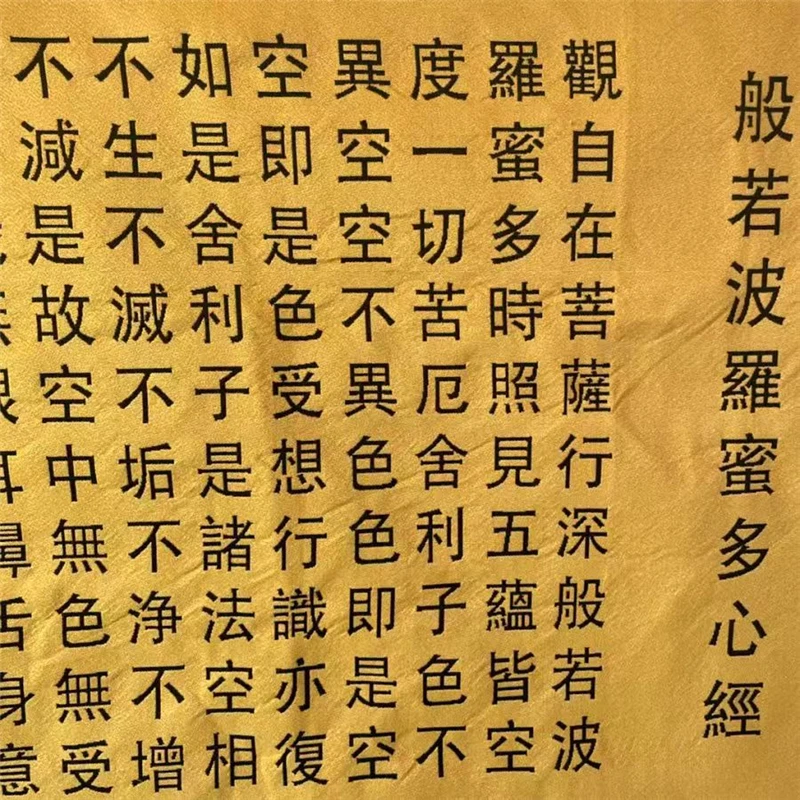 般若波羅蜜多心經
觀自在菩薩行深般若波
羅蜜多時照見五蘊皆空
度一切苦厄舍利子色不
異空空不異色色即是空
空即是色受想行識亦復
如是舍利子是諸法空相
不生不滅不垢不浄不增
不減是故空中無色無受
耳鼻舌身意